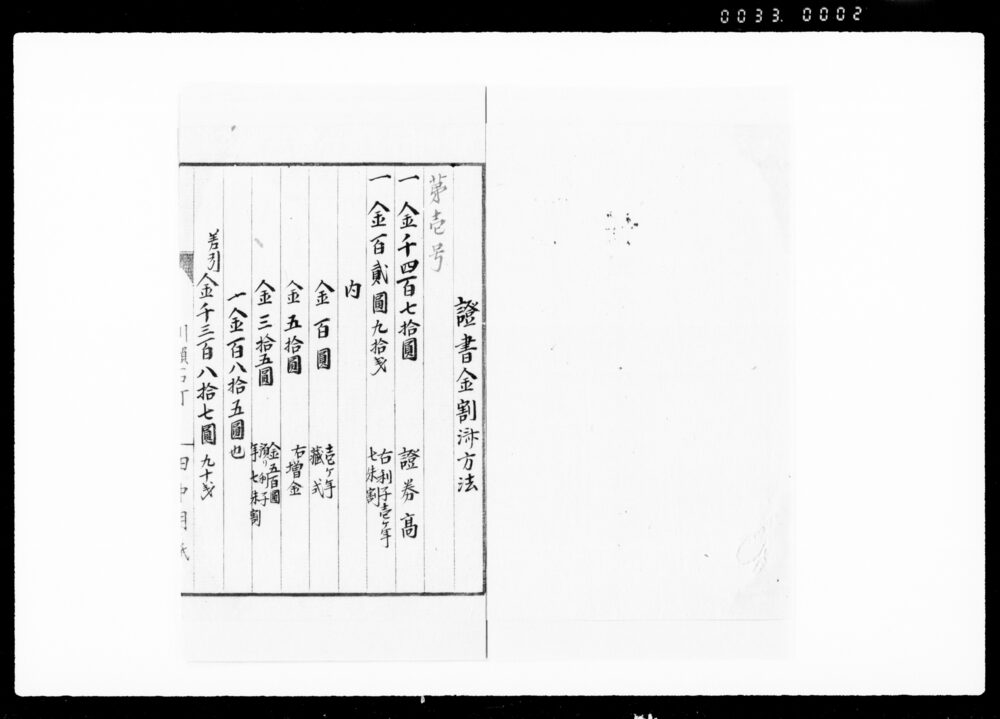 0033. 0002
證書金割済方法
第壱号
一金千四百七拾圓 證券高
一金百貳圓九拾戋 右利子壱ヶ年七朱割
内
金百圓 壱ヶ年蔵式
金五拾圓 右増金
金三拾五圓 金五百圓預リ利子年七朱割
一金百八拾五圓也
差引金千三百八拾七圓九十戋
田中用紙